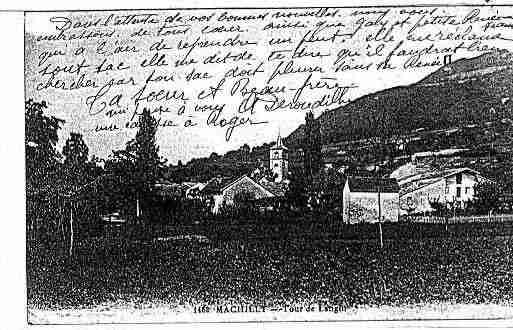 Dans l'attente de vos bonnes nouvelles, nous vous
embrassons de tous cœur, ainsi que Gaby et petite
qui à l'air de reprendre un peut. elle me réclame
sont sac elle me dit de te dire qu'il faudrait bien
chercher car son sac doit pleurer sans sa
Ta sœur et Beau-frère
qui pense à vous
une caresse à Roger
1462 MACHILLY — Tour de Langin